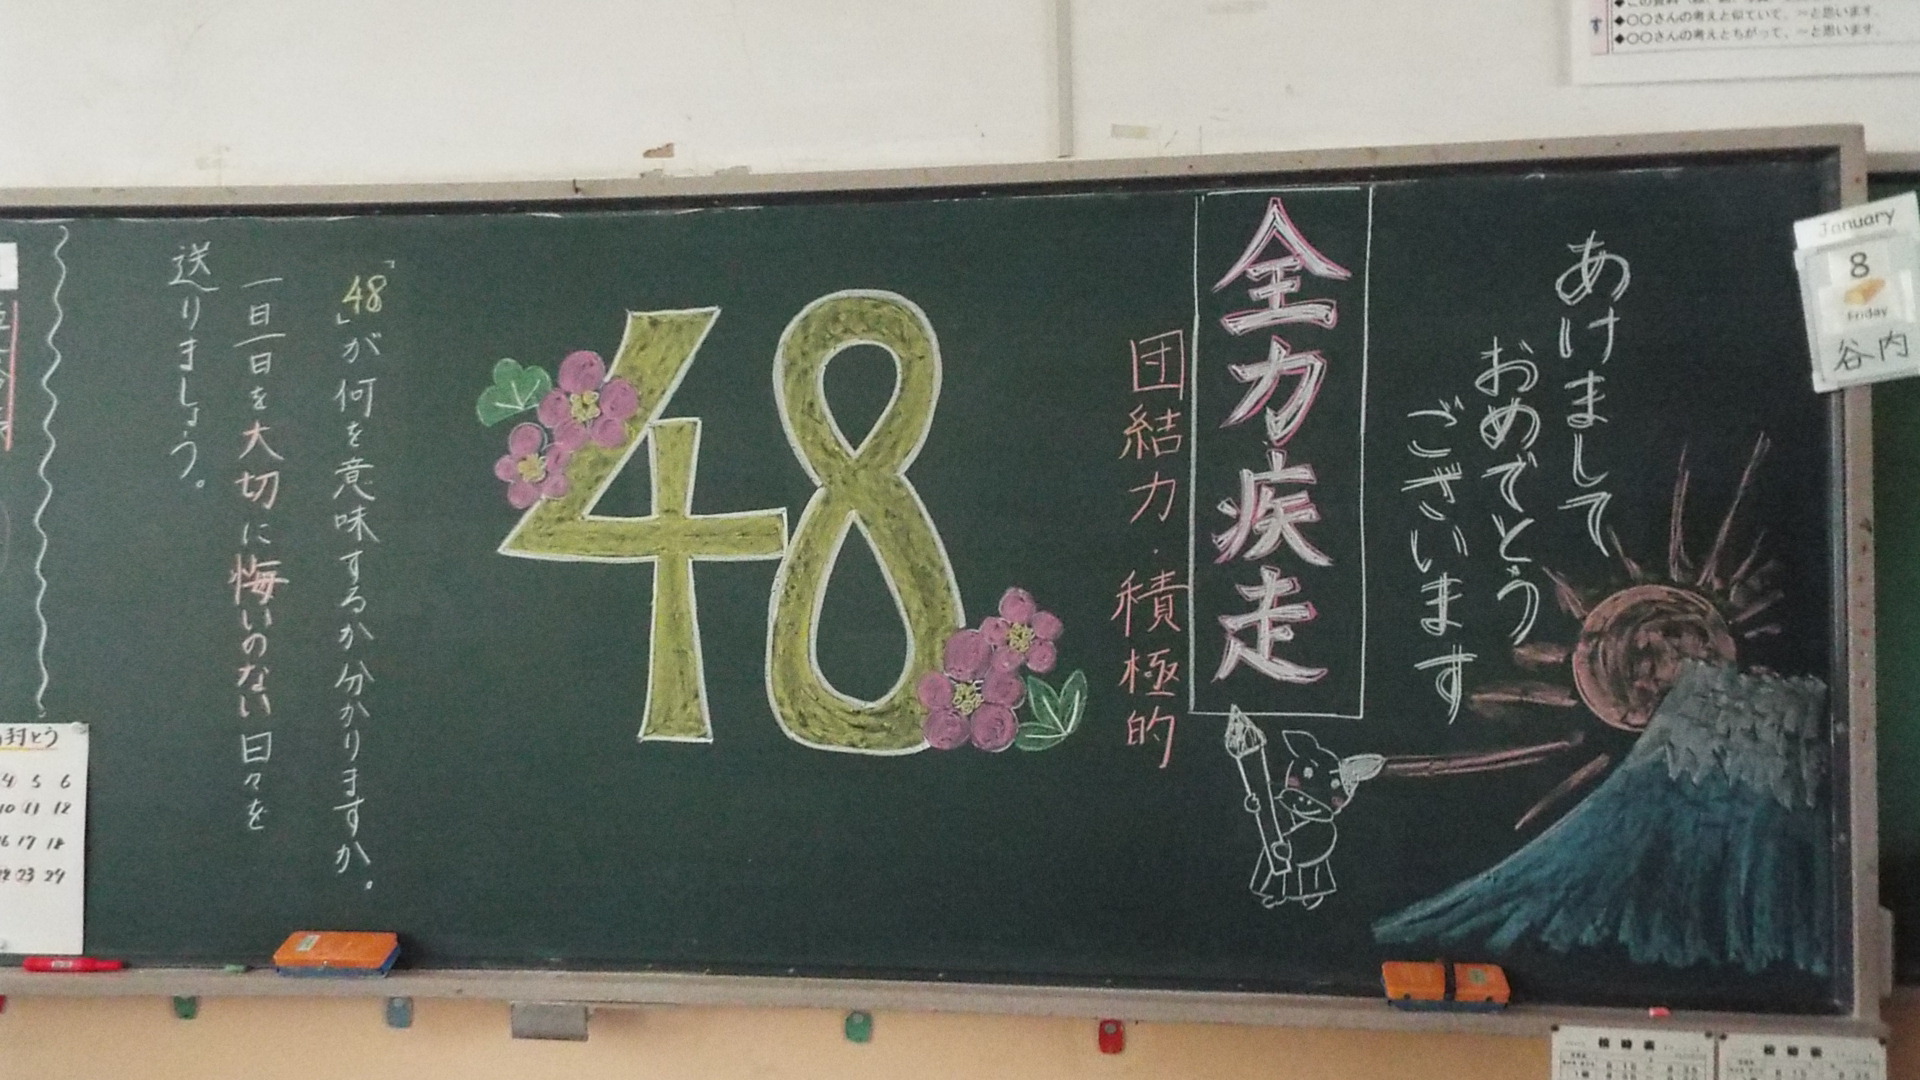 ◆〇〇さんの考えと似ていて、～と思います。
◆〇〇さんの考えとちがって、～と思います。
January
8
Friday
谷内
あけまして
おめでとう
ございます
全力疾走
団結力・積極的
48
「48」が何を意味するか分かりますか。
一日一日を大切に悔いのない日々を
送りましょう。
4 5 6
10 11 12
16 17 18
22 23 24